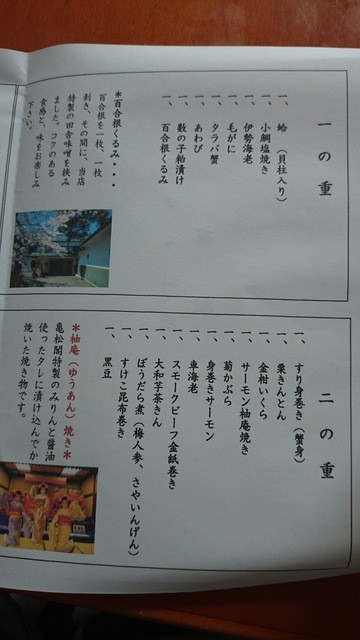 一の重
一、蛤(貝柱入り)
一、小鯛塩焼き
一、伊勢海老
一、毛がに
一、タラバ蟹
一、あわび
一、数の子粕漬け
一、百合根くるみ
*百合根くるみ・・・
百合根を一枚、一枚
剥き、その間に、当店
特製の田舎味噌を挟み
ました。コクのある
食感と、味をお楽しみ
下さい。
二の重
一、すり身巻き(蟹身)
一、栗きんとん
一、金柑いくら
一、サーモン柚庵焼き
一、菊かぶら
一、身巻きサーモン
一、車海老
一、スモークビーフ金紙巻き
一、大和芋茶きん
一、ぼうだら煮(梅人参、さやいんげん)
一、すけこ昆布巻き
一、黒豆
*柚庵(ゆうあん)焼き*
亀松閣特製のみりんと醤油
使ったタレに漬け込んでか
焼いた焼き物です。